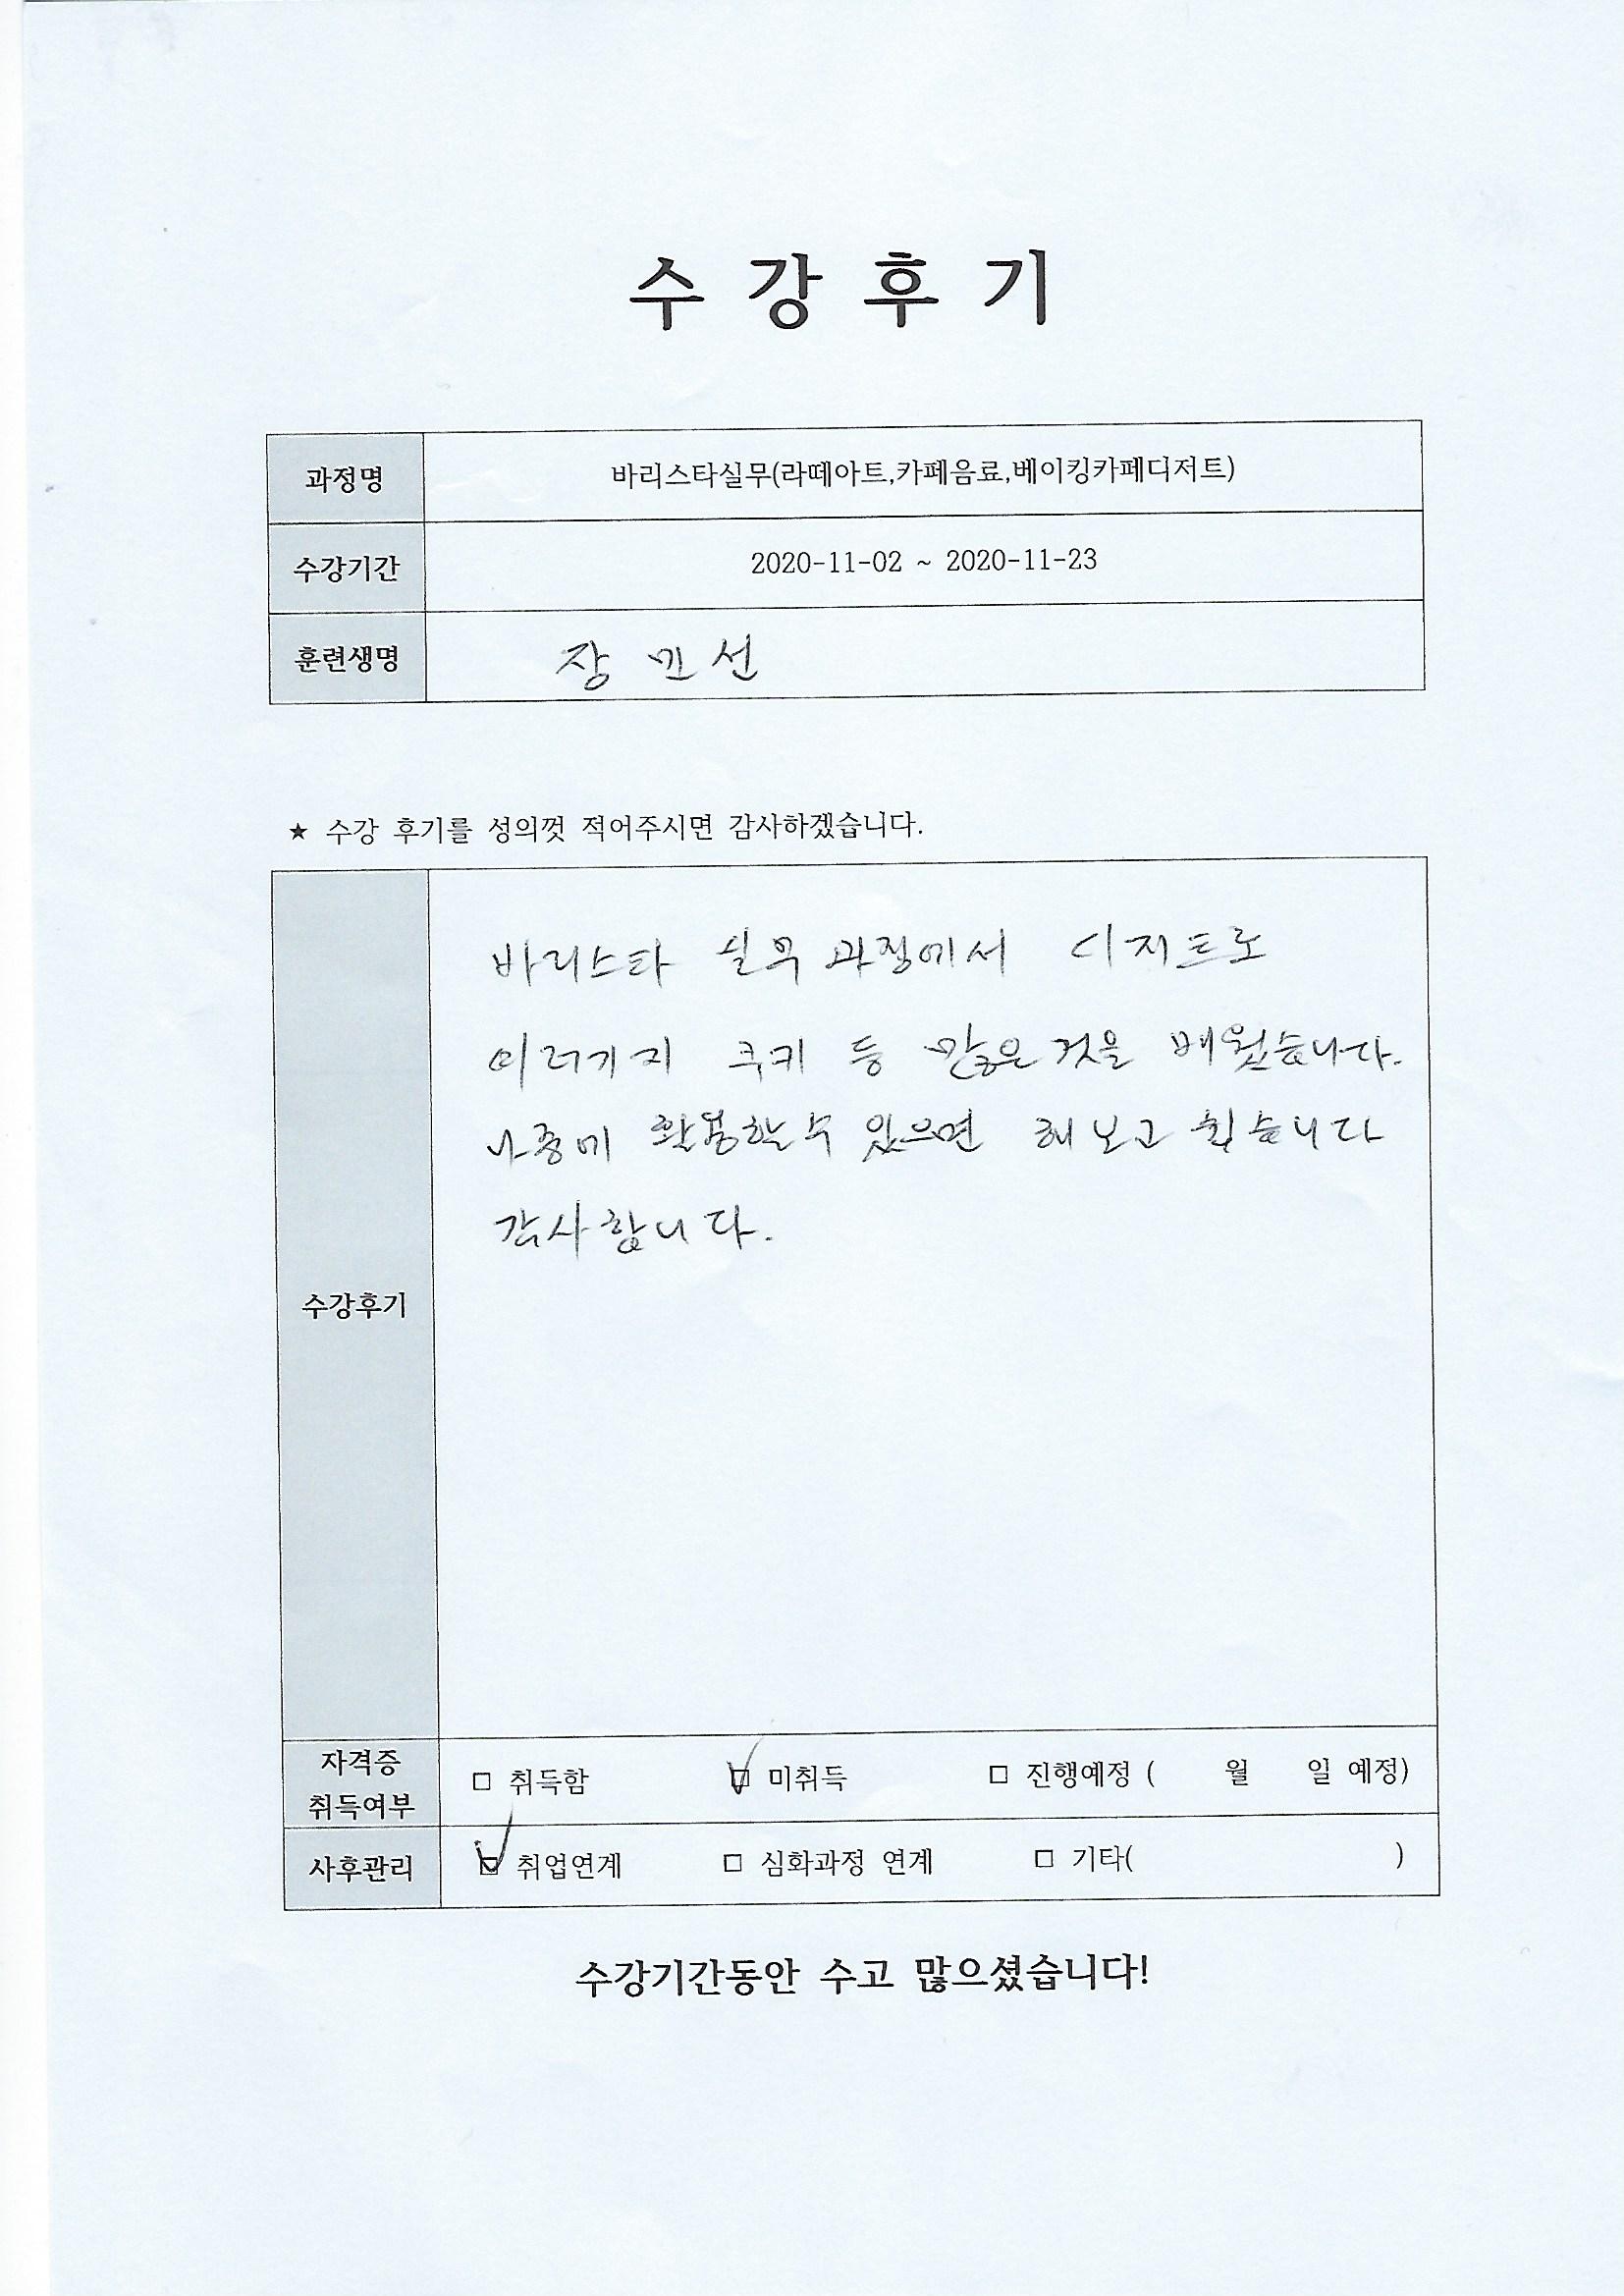 수강후기
과정명 바리스타실무(라떼아트,카페음료,베이킹카페디저트)
수강기간 2020-11-02 ~ 2020-11-23
훈련생명 장민선
★ 수강 후기를 성의껏 적어주시면 감사하겠습니다.
수강후기
바리스타 실무 과정에서 디저트로
쿠키 등 많은 것을 배웠습니다.
나중에 활용할 수 있으면 해보고 싶습니다
감사합니다.
자격증 취득여부 □ 취득함 ☑ 미취득 □ 진행예정 ( 월 일 예정)
사후관리 ☑ 취업연계 □ 심화과정 연계 □ 기타( )
수강기간동안 수고 많으셨습니다!